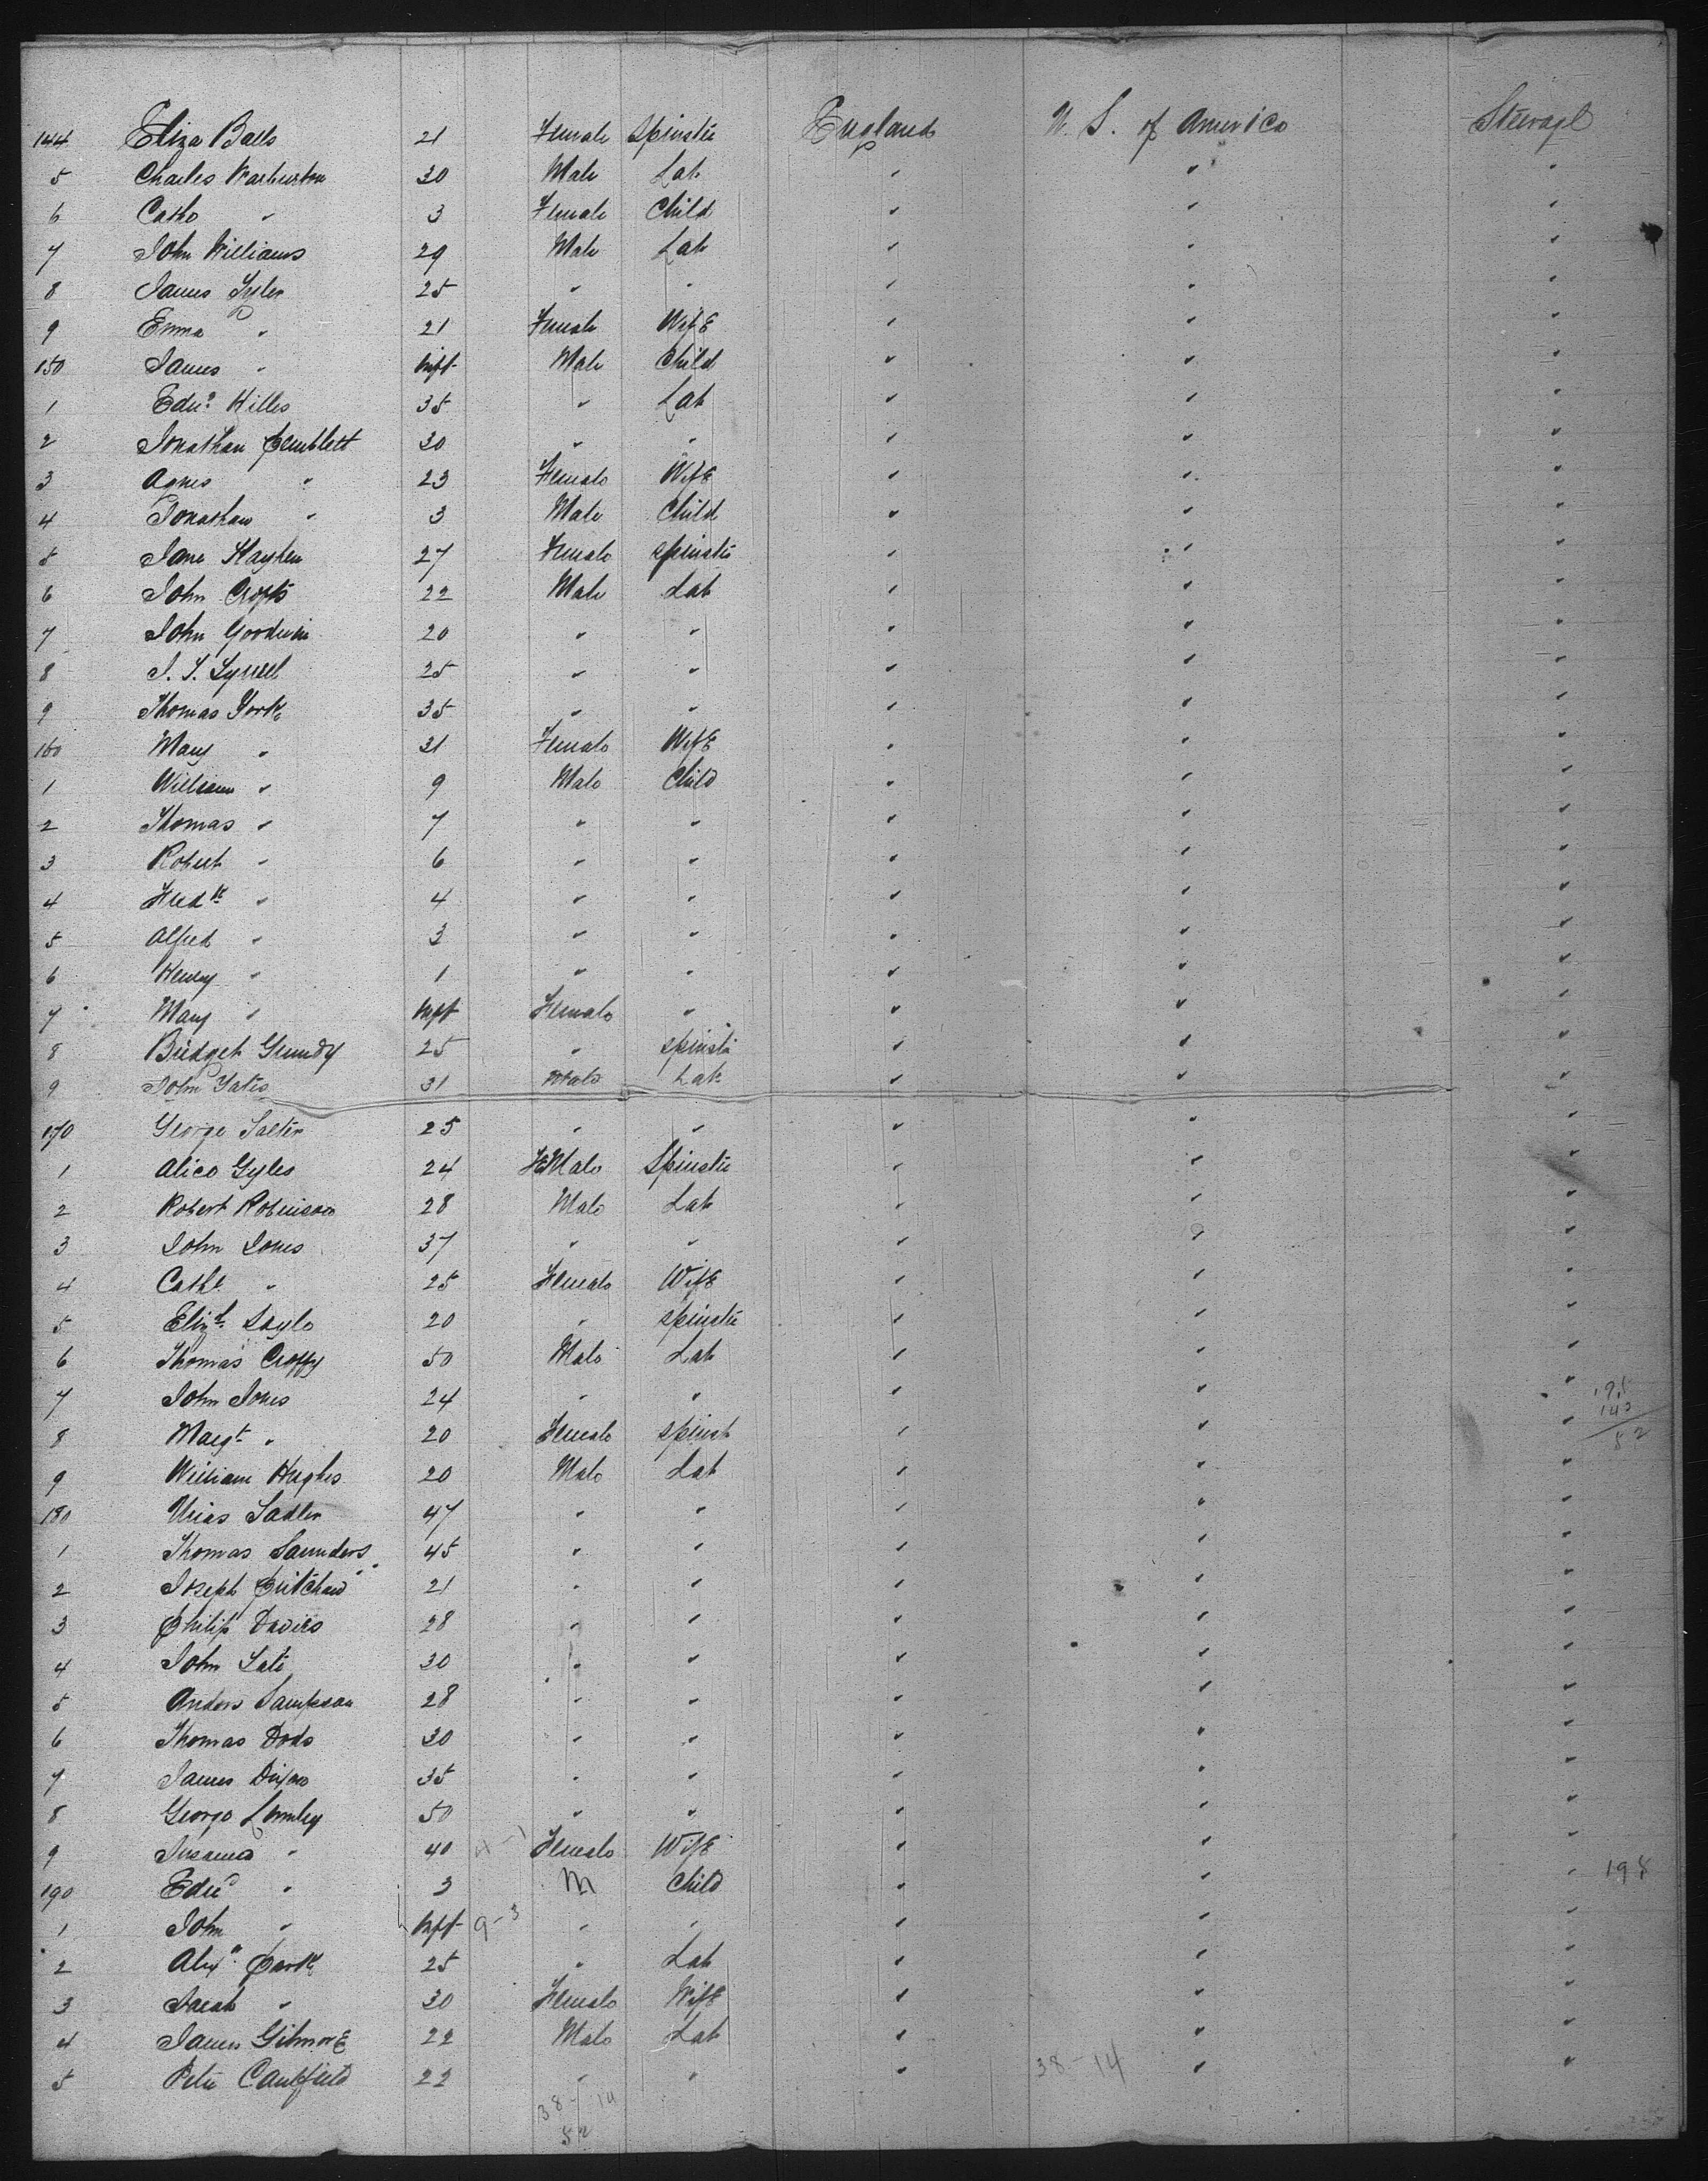 144 Eliza Balls 21 Female Spinster England U. S. of America Steerage
5 Charles Warburton 30 Male Lab " " "
6 Cath " 3 Female Child " " "
7 John Williams 29 Male Lab " " "
8 James Tyler 25 " " " " "
9 Emma " 21 Female Wife " " "
150 James " Inft Male Child " " "
1 Edwd Hilles 35 " Lab " " "
2 Jonathan Pemblett 30 " " " " "
3 Agnes " 23 Female Wife " " "
4 Jonathan " 3 Male Child " " "
5 Jane 27 Female Spinster " " "
6 John Crofts 22 Male Lab " " "
7 John Goodwin 20 " " " " "
8 25 " " " " "
9 Thomas York 35 " " " " "
160 Mary " 31 Female Wife " " "
1 William " 9 Male Child " " "
2 Thomas " 7 " " " " "
3 Robert " 6 " " " " "
4 Fredk " 4 " " " " "
5 Alfred " 3 " " " " "
6 Henry " 1 " " " " "
7 Mary " Inft Female " " " "
8 Bridget Grundy 25 " Spinster " " "
9 John Yates 31 Male Lab " " "
170 George Salter 25 " " " " "
1 Alice Gyles 24 FeMale Spinster " " "
2 Robert Robinson 28 Male Lab " " "
3 John Jones 37 " " " " "
4 Cathe " 25 Female Wife " " "
5 Elizth 20 " Spinster " " "
6 Thomas Croffy 50 Male Lab " " "
7 John Jones 24 " " " " "
8 Margt " 20 Female Spinst " " "
9 William Hughes 20 Male Lab " " "
180 Urias Sadler 47 " " " " "
1 Thomas Saunders 45 " " " " "
2 Joseph Pritchard 21 " " " " "
3 Philip Davies 28 " " " " "
4 John 30 " " " " "
5 Anders Sampson 28 " " " " "
6 Thomas Dods 30 " " " " "
7 James Dixon 35 " " " " "
8 George Lumley 50 " " " " "
9 Susanna " 40 Female Wife " " "
190 Edwd " 3 M Child " " " 195
1 John " Inft 9-3 " " " " "
2 Alexr Park 25 " Lab " " "
3 Sarah " 30 Female Wife " " "
4 James Gilmore 22 Male Lab " " "
5 Peter Caulfield 22 " " " " "
38-14
38-14
52